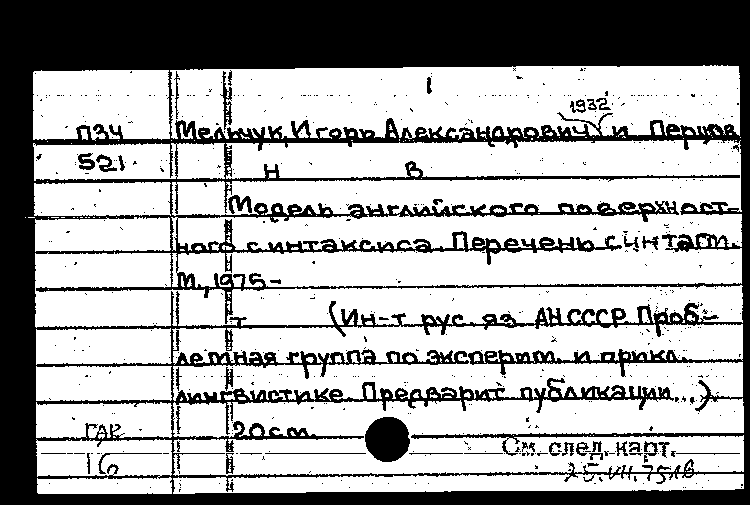 1
1932
П34 Мельчук, Игорь Александрович и Перцов
521 Н В
Модель английского поверхност-
ного синтаксиса. Перечень синтагм.
М., 1975-
т (Ин-т рус. яз. АН СССР. Проб-
лемная группа по эксперим. и прикл.
лингвистике. Предварит публикации...).
ГАР 20см.
16 См. след. карт.
25.VII.75